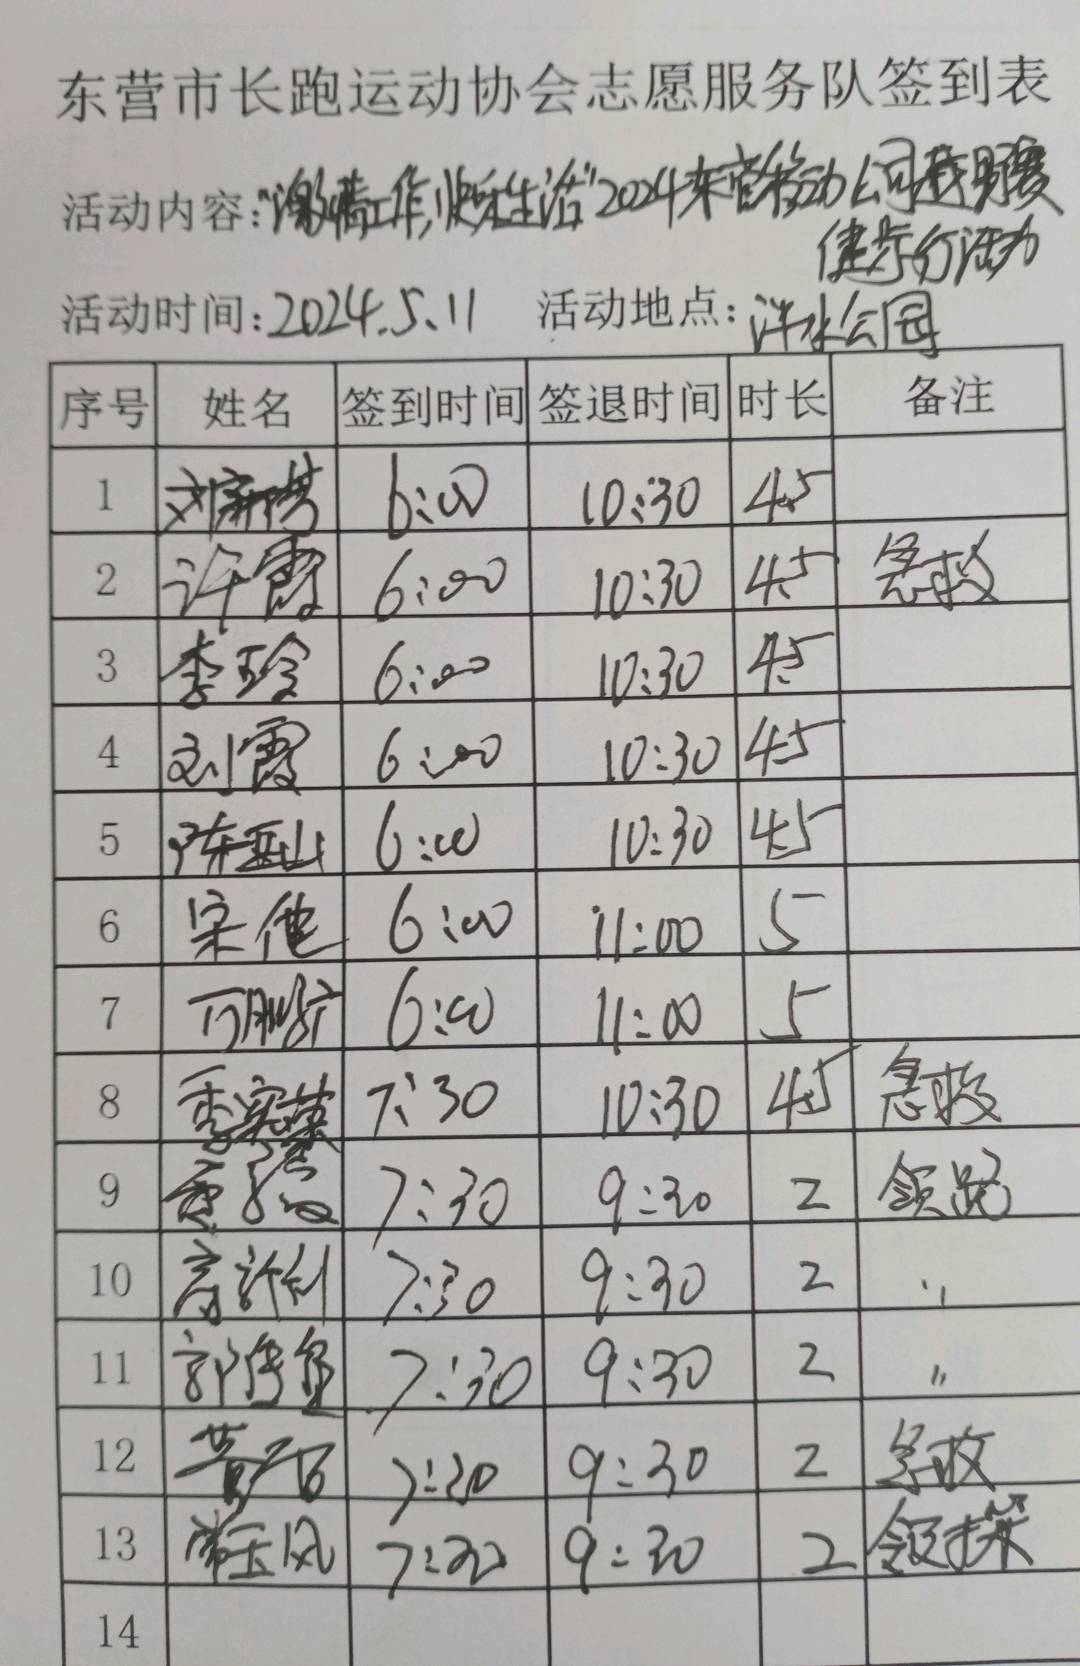 东营市长跑运动协会志愿服务队签到表
活动内容:"激情工作,快乐生活"2024东营移动公司
健步行活动
活动时间:2024.5.11 活动地点:泮水公园
序号 姓名 签到时间 签退时间 时长 备注
1 6:00 10:30 4.5
2 许霞 6:00 10:30 4.5 急救
3 李玲 6:00 10:30 4.5
4 刘霞 6:00 10:30 4.5
5 陈亚山 6:00 10:30 4.5
6 宋健 6:00 11:00 5
7 6:00 11:00 5
8 7:30 10:30 4.5 急救
9 7:30 9:30 2 领跑
10 7:30 9:30 2 〃
11 7:30 9:30 2 〃
12 7:30 9:30 2 急救
13 常玉凤 7:30 9:30 2
14